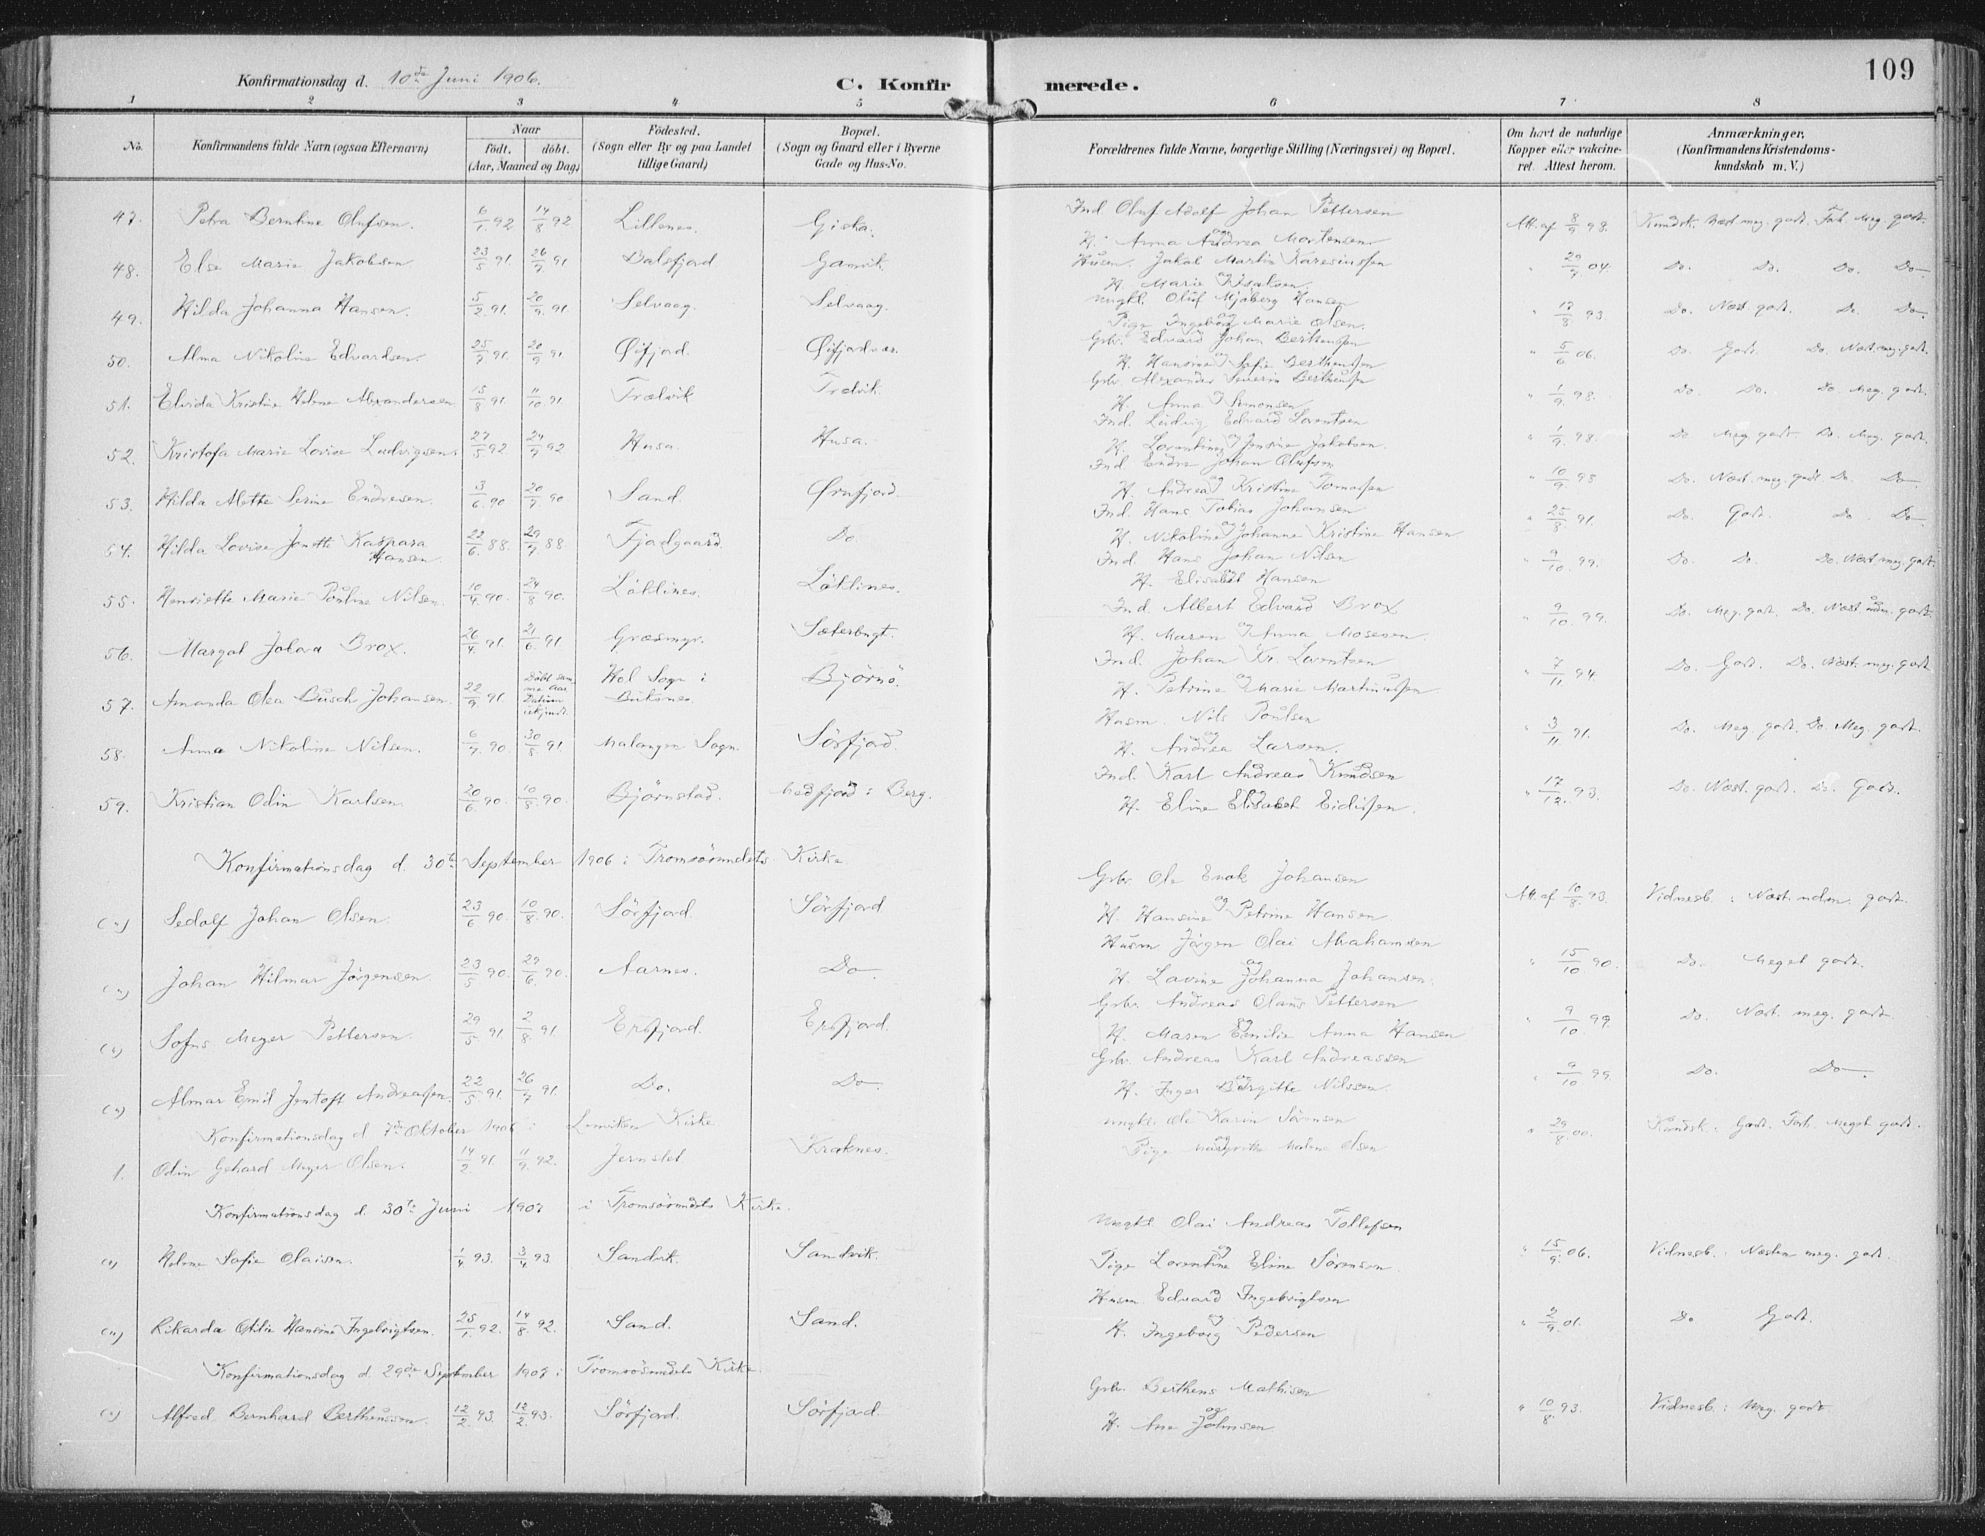 109
Konfirmationsdag d. 10de Juni 1906.
C. Konfirmerede.
1 2 3 4 5 6 7 8
No.
Konfirmandens fulde Navn (ogsaa Efternavn)
Naar
födt. döbt.
(Aar, Maaned og Dag)
Födested.
(Sogn eller By og paa Landet
tillige Gaard)
Bopæl.
(Sogn og Gaard eller i Byerne
Gade og Hus-No.
Forældrenes fulde Navne, borgerlige Stilling (Næringsvei) og Bopæl.
Om havt de naturlige
Kopper eller vakcine-
ret. Attest herom.
Anmærkninger.
(Konfirmandens Kristendoms-
kundskab m. V.)
47. Petra Berntine Olufsen. 6/1 92 14/8 92 Lillenes. Giska. Ind Oluf Adolf Johan Pettersen og H. Anna Andrea Mortensen Att. af 8/9 98. Kundsk. Næst meg. godt. Forh. Meg. godt.
48. Else Marie Jakobsen 23/5 91. 26/9 91 Balsfjord Gamvik. Husm. Jakob Martin Karesiussen og H. Marie 29/9 04. Do. Do. Do. Do
49. Hilda Johanna Hansen. 5/2 91. 20/9 91 Selvaag. Selvaag. Ungkl. Oluf Mjöberg Hansen og Pige Ingeborg Marie Olsen. 17/8 93. Do. Næst. godt. Do. Do
50. Alma Nikoline Edvardsen. 25/7 91. 20/9 91 Øifjord. Øifjordvær. Grbr. Edvard Johan Berthenssen og H. Hansine Sofie Berthenssen 5/6 06. Do. Godt. Do. Næst. meg. godt.
51. Elvida Kristine Helene Alexandersen 15/8 91. 11/10 91 Trælvik Trælvik. Grbr. Alexander Severin Berthenssen og H. Anna Simonsen. 1/9 98. Do. Do. Do. Meg. godt.
52. Kristofa Marie Lovise Ludvigsen. 27/5 92 24/9 92 Husa. Husa. Ind. Ludvig Edvard Lorentsen og H. Lorentine Jensine Jakobsen. 1/9 98. Do. Meg. godt Do. Meg. godt.
53. Hilda Alette Serine Endresen. 3/6 90 20/9 90 Sand. Ørnfjord. Ind Endre Johan Olufsen og H. Andrea Kristine Tomassen 10/9 98 Do. Næst. meg. godt Do. Do
54. Hilda Lovise Jenette Kaspara Hansen. 22/6 88. 29/9 88 Fjordgaard. Do. Ind. Hans Tobias Johansen og H. Nikoline Johanne Kristine Hansen 25/8 91. Do. Godt. Do. Do
55. Henriette Marie Pauline Nilsen 10/4 90. 24/8 90. Laklines. Laklines. Ind. Hans Johan Nilsen og H. Elisabet Hansen 9/10 99. Do. Do. Do. Næst meg. godt.
56. Margot Johana Brox. 26/4 91. 21/6 91. Græsmyr. Sæterbugt. Ind. Albert Edvard Brox og H. Maren Anna Mosesen. 9/10 99. Do. Meg. godt. Do. Næst udm. godt
57. Amanda Olea Busch Johansen. 22/9 91. Döbt samme Aar Datum ukjendt. Hol Sogn i Buksnes. Bjørnö. Ind. Johan Kr. Lorentsen og H. Petrine Marie Martinussen 7/11 94. Do. Godt. Do. Næst. meg. godt
58. Anna Nikoline Nilsen. 6/7 90. 30/8 91 Malangen Sogn. Sörfjord Husm. Nils Poulsen og H. Andrea Larsen. 3/11 91. Do. Meg. godt. Do. Meg. godt.
59. Kristian Odin Karlsen. 20/6 90. 10/8 90. Björnstad. fjord i Berg. Ind. Karl Andreas Knudsen og H. Eline Elisabet Eidissen. 17/12 93. Do. Næst. godt. Do. Godt.
Konfirmationsdag d. 30te September 1906 i Tromsösundets Kirke
(") Sedolf Johan Olsen. 23/6 90. 10/8 90. Sörfjord Sörfjord Grbr. Ole Enok Johansen og H. Hansine Petrine Hansen Att. af 10/8 93. Vidnesb.: Næst. udm. godt.
(") Johan Hilmar Jörgensen. 23/5 90. 29/6 90. Aarnes. Do Husm Jörgen Olai Abrahamsen og H. Lavine Johanna Johansen. 15/10 90. Do. Meget godt.
(") Sofus Meyer Pettersen. 29/5 91. 2/8 91. Ersfjord. Ersfjord. Grbr. Andreas Olaus Pettersen og H. Maren Emilie Anna Hansen 9/10 99. Do. Næst. meg. godt
(") Almar Emil Jentoft Andreassen. 22/5 91. 26/7 91. Do. Do Grbr. Andreas Karl Andreassen og H. Inger Birgitte Nilssen. 9/10 99. Do. Do.
Konfirmationsdag d 7de Oktober 1906 i Lenviken Kirke
1. Odin Gehard Meyer Olsen. 14/2 91. 11/9 92. Jernslet Kraknes. Ungkl. Ole Karin Sörensen og Pige Margrethe Malene Olsen 29/8 00. Kundsk.: Godt. Forh. Meget godt.
Konfirmationsdag d. 30te Juni 1907 i Tromsösundets Kirke.
(") Helene Sofie Olaisen. 1/4 93. 3/4 93 Sandvik. Sandvik. Ungkl. Olai Andreas Tollefsen og Pige Lorentine Eline Sörensen. 15/9 06. Vidnesb.: Næsten meg. godt.
(") Rikarda Otilie Hansine Ingebrigtsen. 25/1 92. 14/8 92. Sand. Sand. Husm Edvard Ingebrigtsen og H. Ingeborg Pedersen 2/9 01. Do Godt.
Konfirmationsdag d. 29de September 1907 i Tromsösundets Kirke
(") Alfred Bernhard Berthenssen. 12/2 93. 12/2 93. Sörfjord. Sörfjord. Grbr. Berthens Mathisen og H. Ane Johnsen 10/8 93. Vidnesb.: Meg. godt.